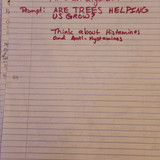 Prompt: ARE TREES HELPING
US GROW?
Think about Histamines
and Anti-Hystamines